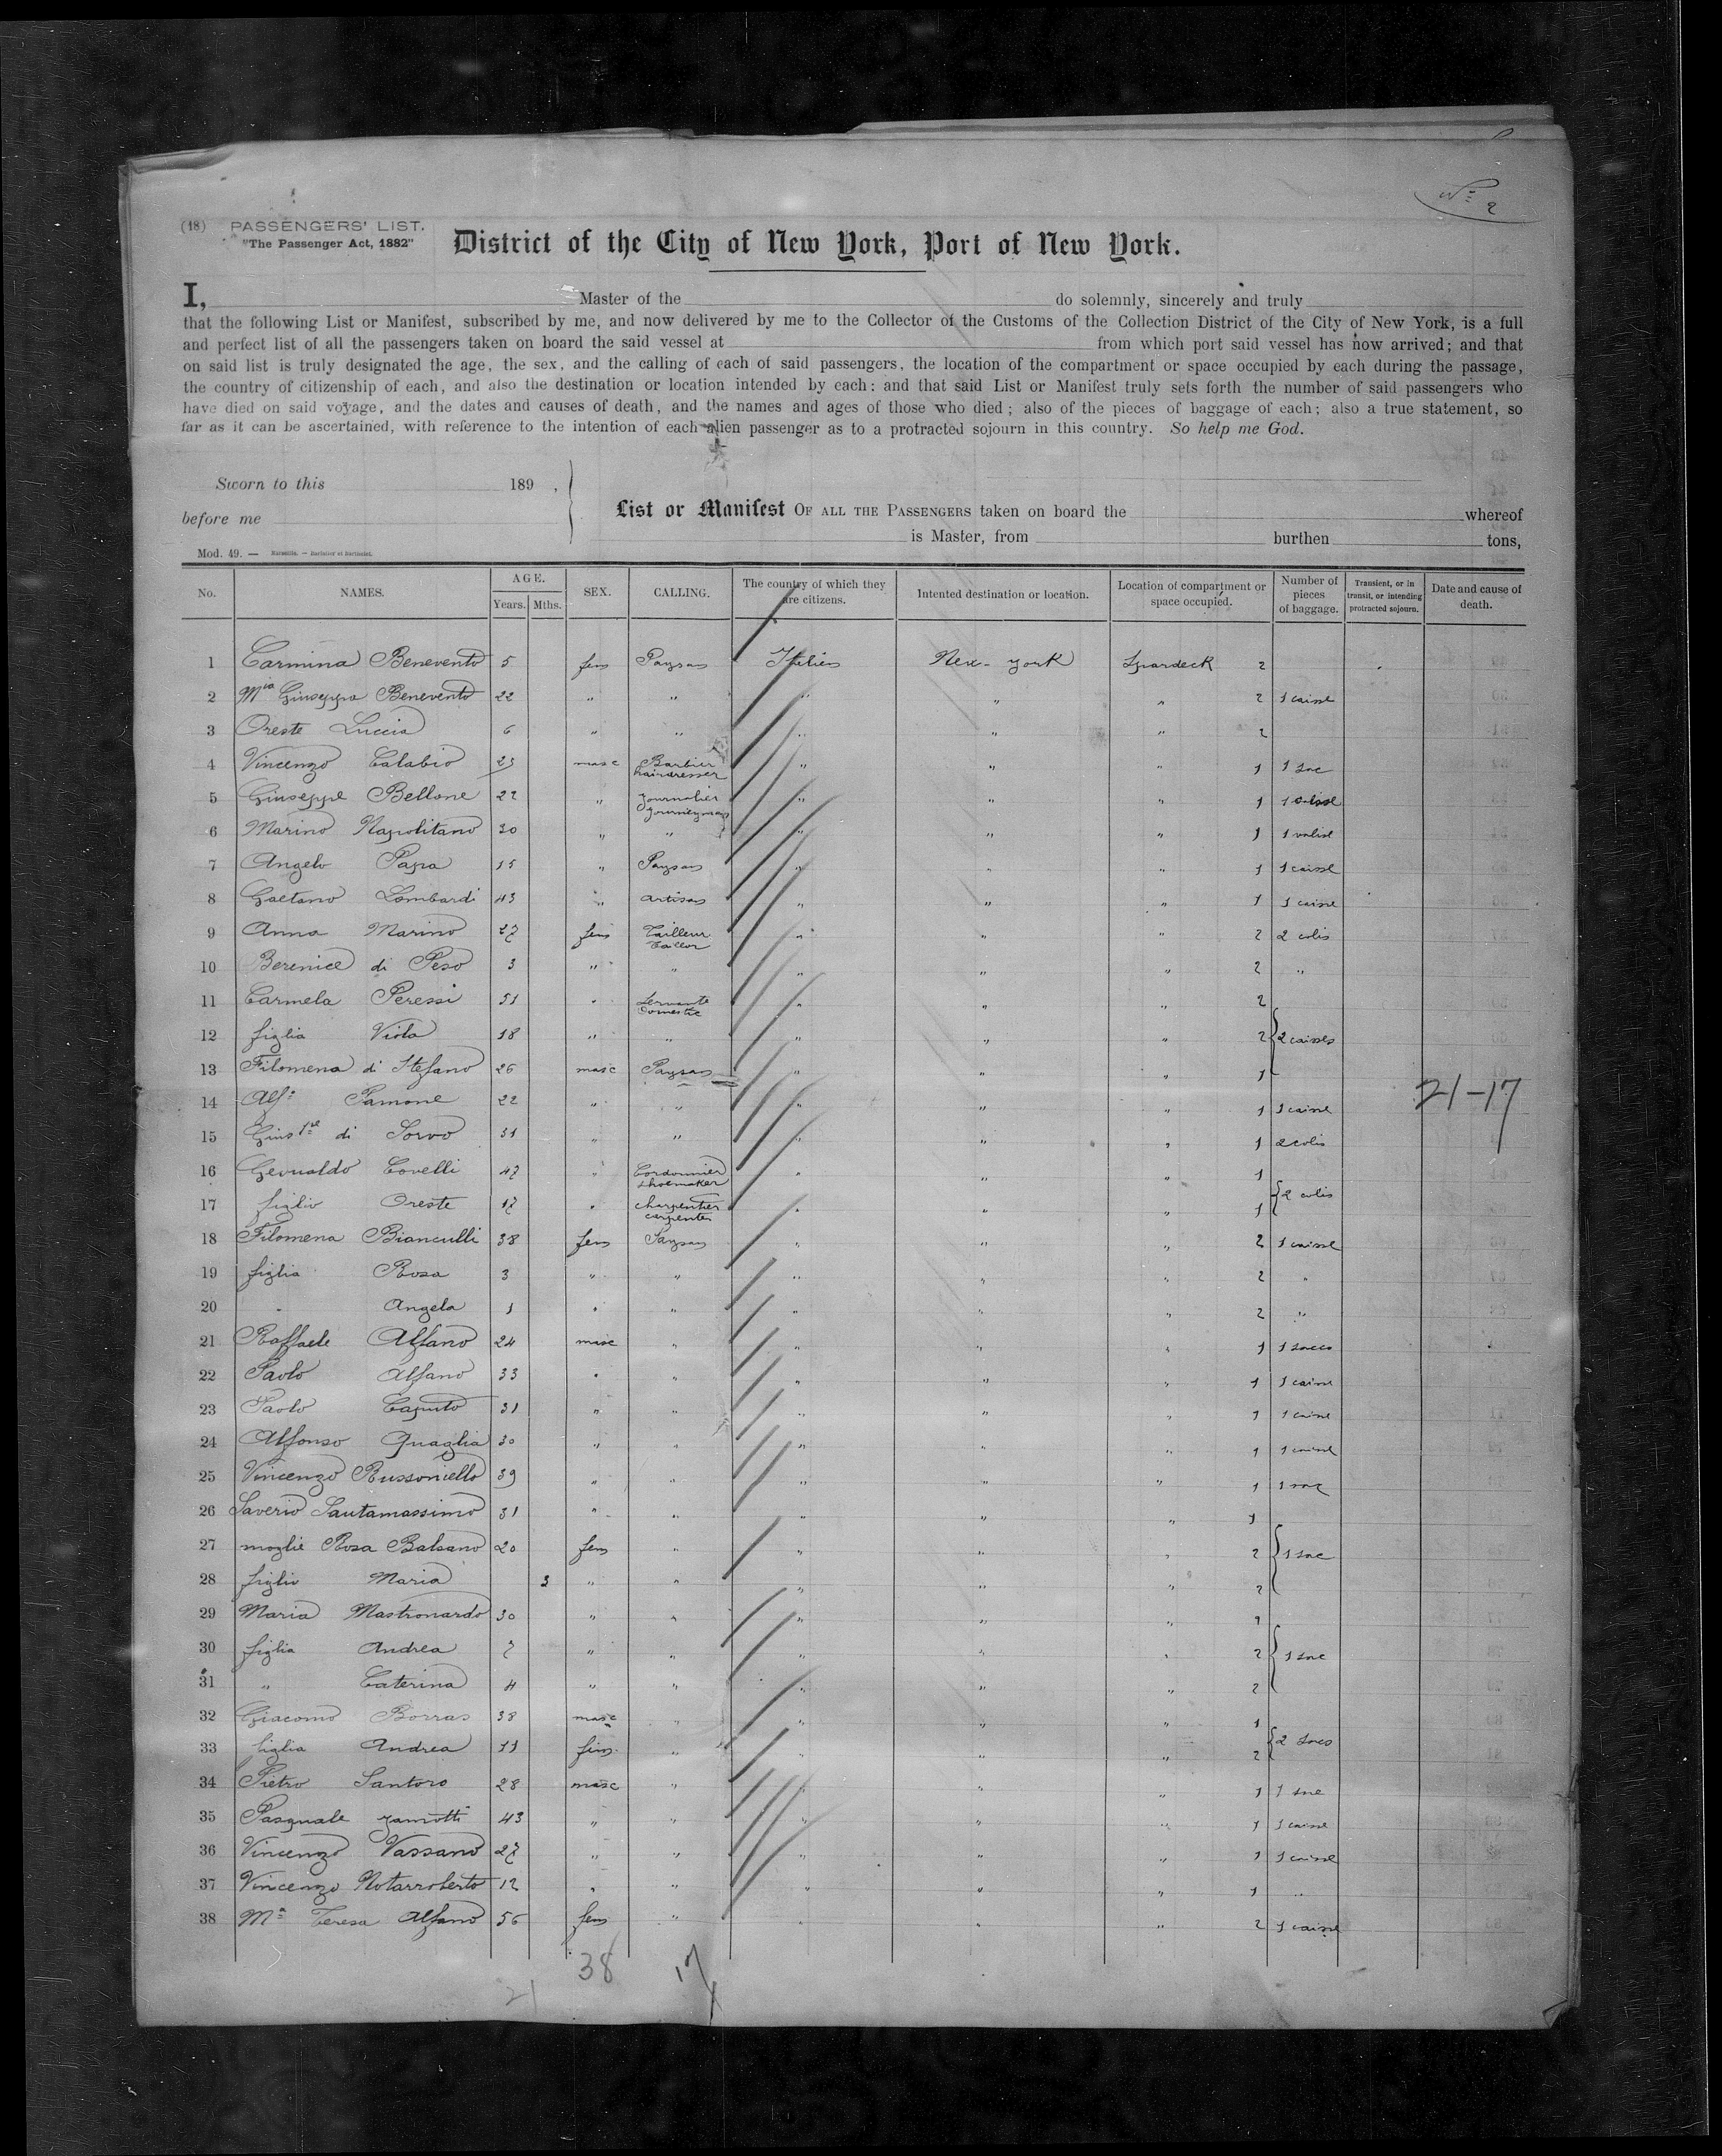 Nº 2
(18) PASSENGERS' LIST.
"The Passenger Act, 1882"
District of the City of New York, Port of New York.
I, Master of the do solemnly, sincerely and truly
that the following List or Manifest, subscribed by me, and now delivered by me to the Collector of the Customs of the Collection District of the City of New York, is a full
and perfect list of all the passengers taken on board the said vessel at from which port said vessel has now arrived; and that
on said list is truly designated the age, the sex, and the calling of each of said passengers, the location of the compartment or space occupied by each during the passage,
the country of citizenship of each, and also the destination or location intended by each: and that said List or Manifest truly sets forth the number of said passengers who
have died on said voyage, and the dates and causes of death, and the names and ages of those who died; also of the pieces of baggage of each; also a true statement, so
far as it can be ascertained, with reference to the intention of each alien passenger as to a protracted sojourn in this country. So help me God.
Sworn to this 189 ,
before me
List or Manifest OF ALL THE PASSENGERS taken on board the whereof
is Master, from burthen tons,
Mod. 49. — Marseille. — Barlatier et Barthelet.
No. NAMES. AGE. Years. Mths. SEX. CALLING. The country of which they are citizens. Intented destination or location. Location of compartment or space occupied. Number of pieces of baggage. Transient, or in transit, or intending protracted sojourn. Date and cause of death.
1 Carmina Benevento 5 fem Paysan Italien New-york Spardeck 2
2 Mia Giuseppa Benevento 22 " " " " " 2 1 caisse
3 Oreste Luccia 6 " " " " " 2
4 Vincenzo Calabio 23 masc Barbier hairdresser " " " 1 1 sac
5 Giuseppe Bellone 22 " Journalier Journeyman " " " 1 1 valise
6 Marino Napolitano 30 " " " " " 1 1 valise
7 Angelo Papa 15 " Paysan " " " 1 1 caisse
8 Gaetano Lombardi 43 " artisan " " " 1 1 caisse
9 Anna Marino 27 fem Tailleur Taillor " " " 2 2 colis
10 Berenice di Peso 3 " " " " " 2 "
11 Carmela Peressi 51 " Servante Domestic " " " 2
12 figlia Viola 18 " " " " " 2 2 caisses
13 Filomena di Stefano 26 masc Paysan " " " 1
14 Alf: Pamone 22 " " " " " 1 1 caisse
21-17
15 di Sorvo 31 " " " " " 1 2 colis
16 Gevualdo Covelli 47 " Cordonnier Shoemaker " " " 1
17 figlio Oreste 17 " charpentier carpenter " " " 1 2 colis
18 Filomena Bianculli 38 fem Paysan " " " 2 1 caisse
19 figlia Rosa 3 " " " " " 2 "
20 " Angela 1 " " " " " 2 "
21 Raffaele Alfano 24 masc " " " " 1 1 sacco
22 Paolo Alfano 33 " " " " " 1 1 caisse
23 Paolo Caputo 31 " " " " " 1 1 caisse
24 Alfonso Quaglia 30 " " " " " 1 1 caisse
25 Vincenzo Russoniello 39 " " " " " 1 1 sac
26 Saverio Santamassimo 31 " " " " " 1
27 moglie Rosa Balsano 20 fem " " " " 2 1 sac
28 figlio Maria 3 " " " " " 2
29 Maria Mastronardo 30 " " " " " 2
30 figlia Andrea 7 " " " " " 2 1 sac
31 " Caterina 4 " " " " " 2
32 Giacomo Borras 38 masc " " " " 1
33 figlia Andrea 11 fem " " " " 2 2 sacs
34 Pietro Santoro 28 masc " " " " 1 1 sac
35 Pasquale Zamotti 43 " " " " " 1 1 caisse
36 Vincenzo Vassano 27 " " " " " 1 1 caisse
37 Vincenzo Notarroberto 12 " " " " " 1 "
38 Mª Teresa Alfano 56 fem " " " " 2 1 caisse
21 38 17